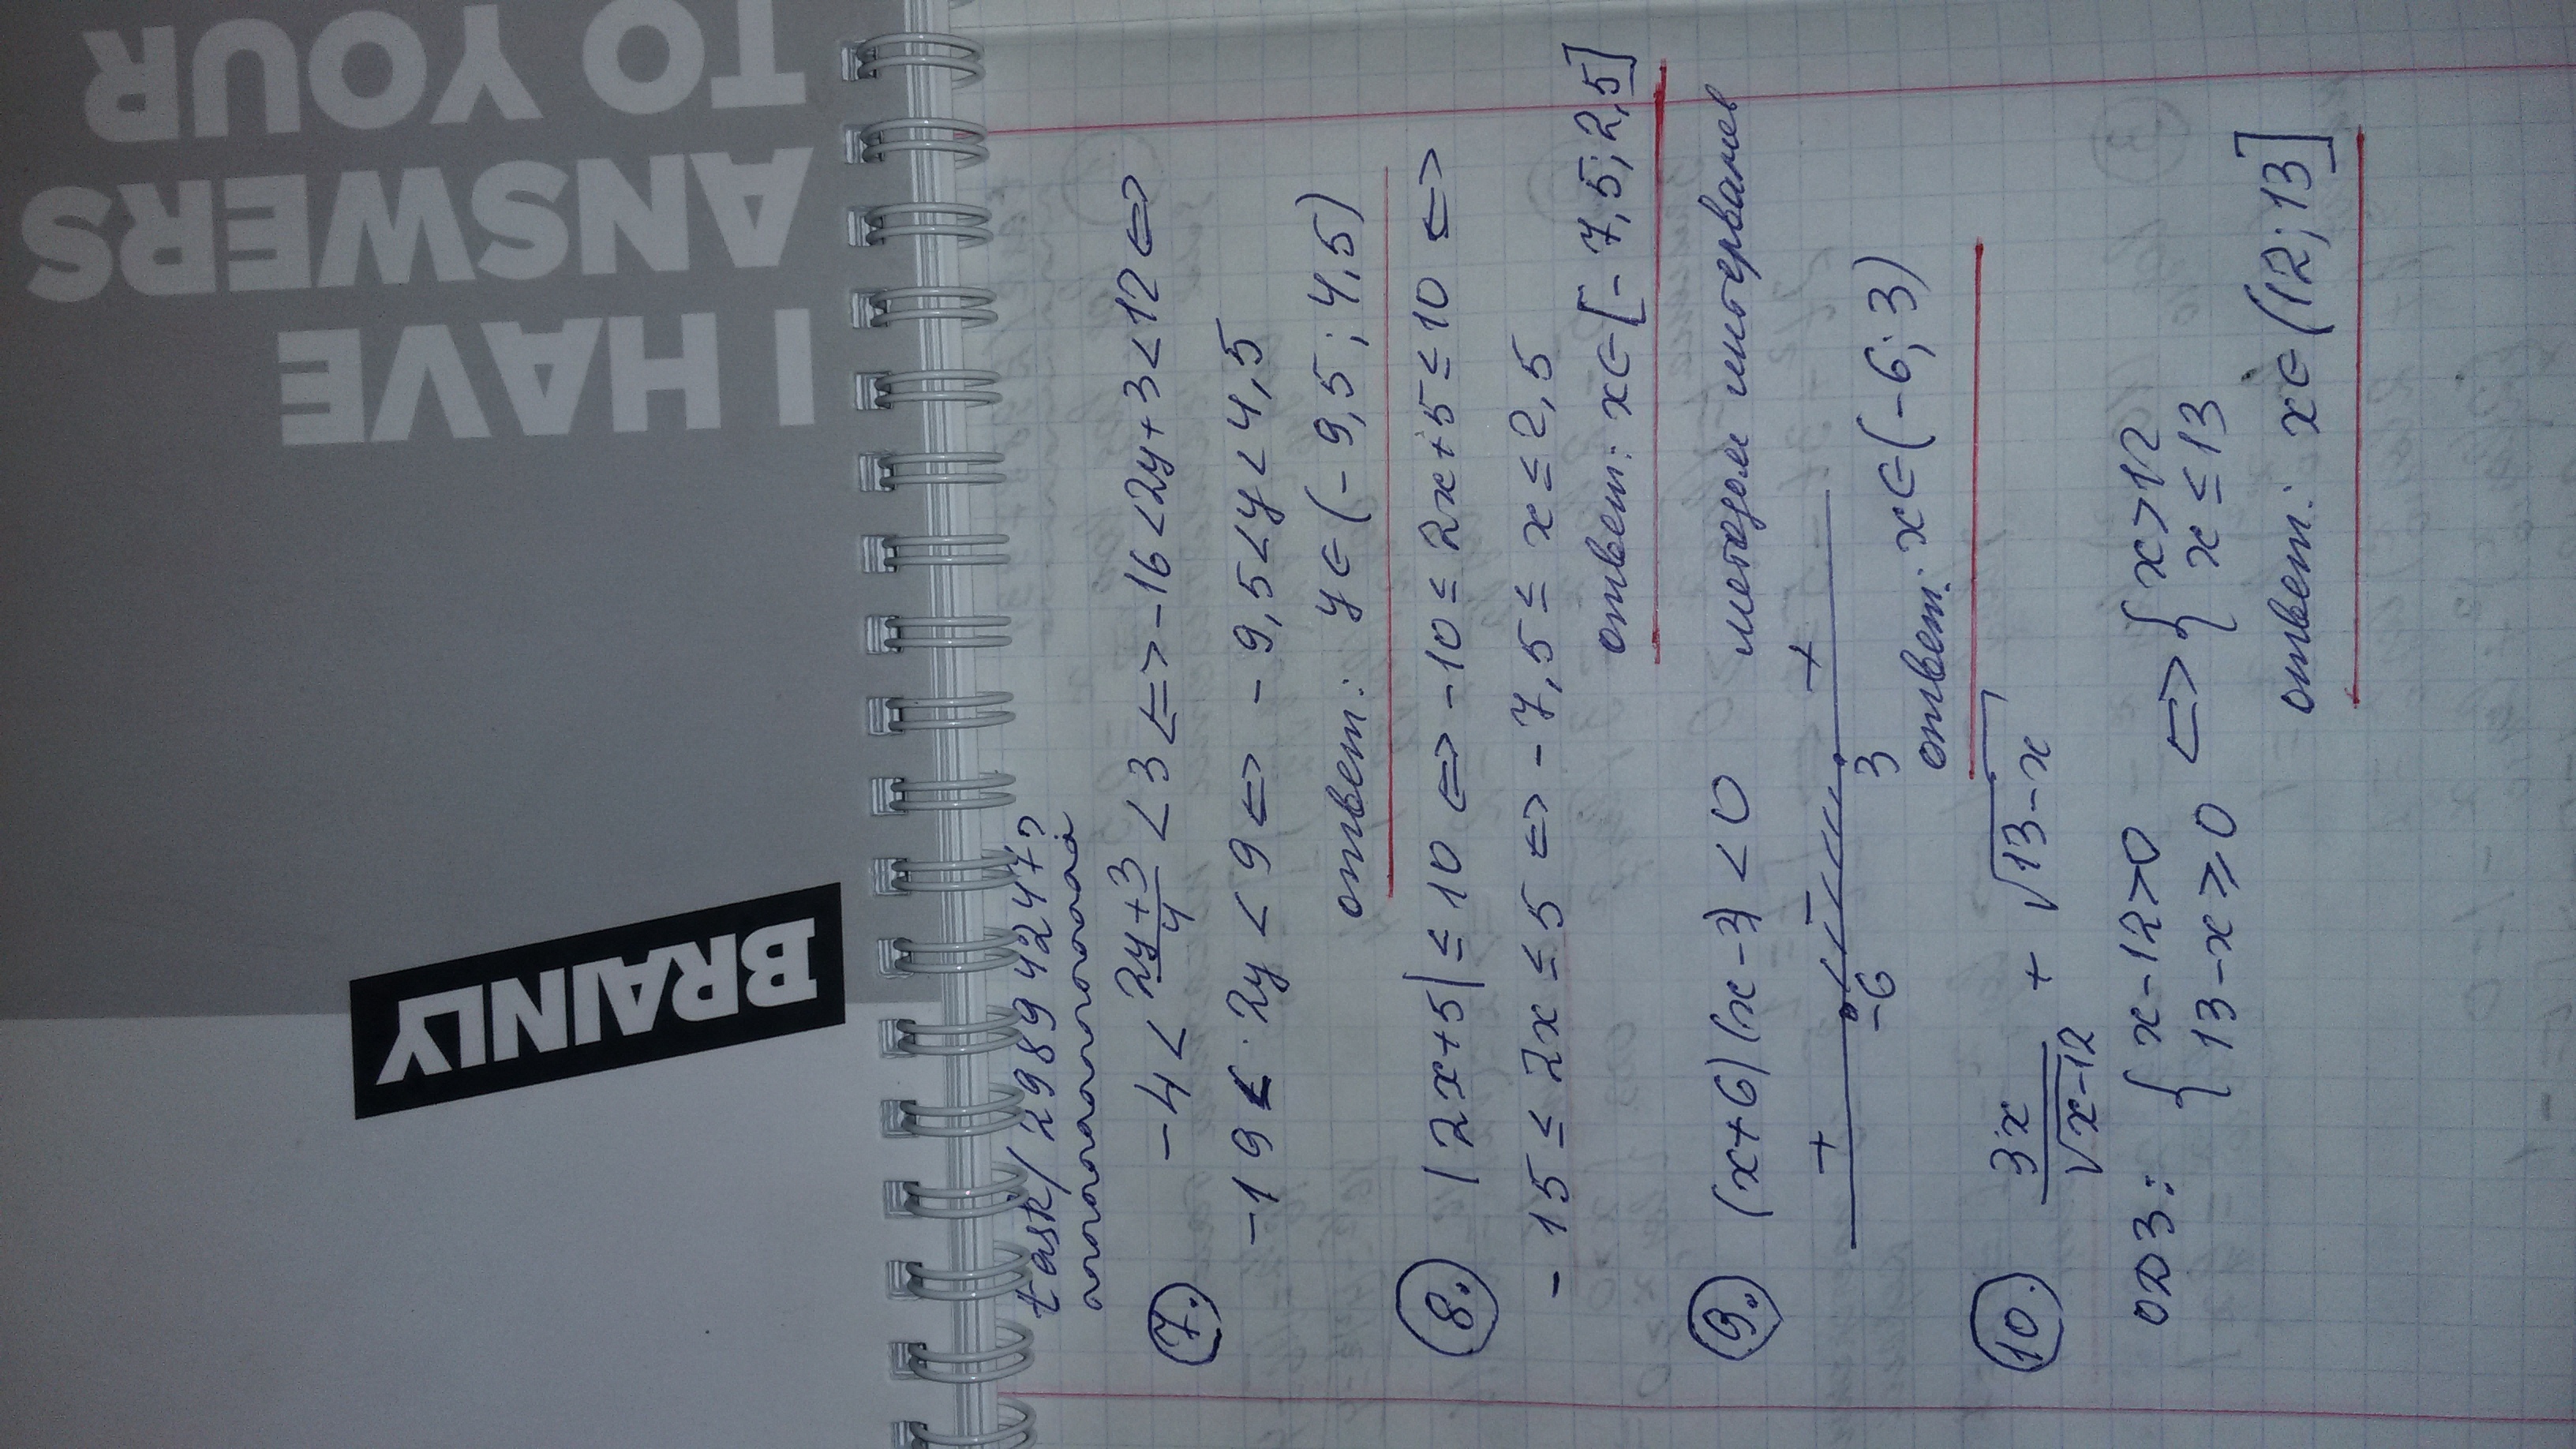 I HAVE
ANSWERS
TO YOUR
BRAINLY
task/29894247?
7. -4 < (2y+3)/4 < 3 <=> -16 < 2y+3 < 12 <=>
-19 < 2y < 9 <=> -9,5 < y < 4,5
ответ: y ∈ (-9,5 ; 4,5)
8. |2x+5| ≤ 10 <=> -10 ≤ 2x+5 ≤ 10 <=>
-15 ≤ 2x ≤ 5 <=> -7,5 ≤ x ≤ 2,5
ответ: x ∈ [-7,5; 2,5]
9. (x+6)(x-3) < 0 методом интервалов
+ - +
-6 3
ответ: x ∈ (-6; 3)
10. 3x/√(x-12) + √(13-x)
ОДЗ: { x-12>0 <=> { x>12
13-x ≥ 0 x ≤ 13
ответ: x ∈ (12; 13]